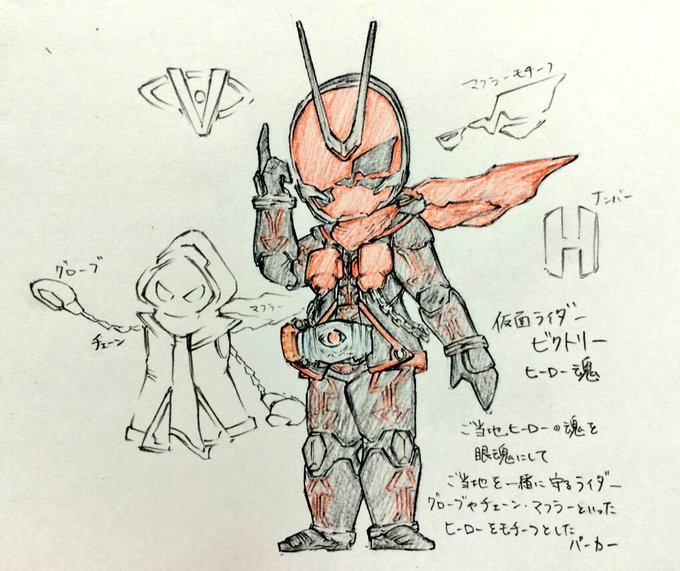 マフラーモチーフ
ナンバー
H
グローブ
チェーン
マフラー
仮面ライダー
ビクトリー
ヒーロー魂
ご当地ヒーローの魂を
眼魂にして
ご当地を一緒に守るライダー
グローブやチェーン・マフラーといった
ヒーローをモチーフとした
パーカー